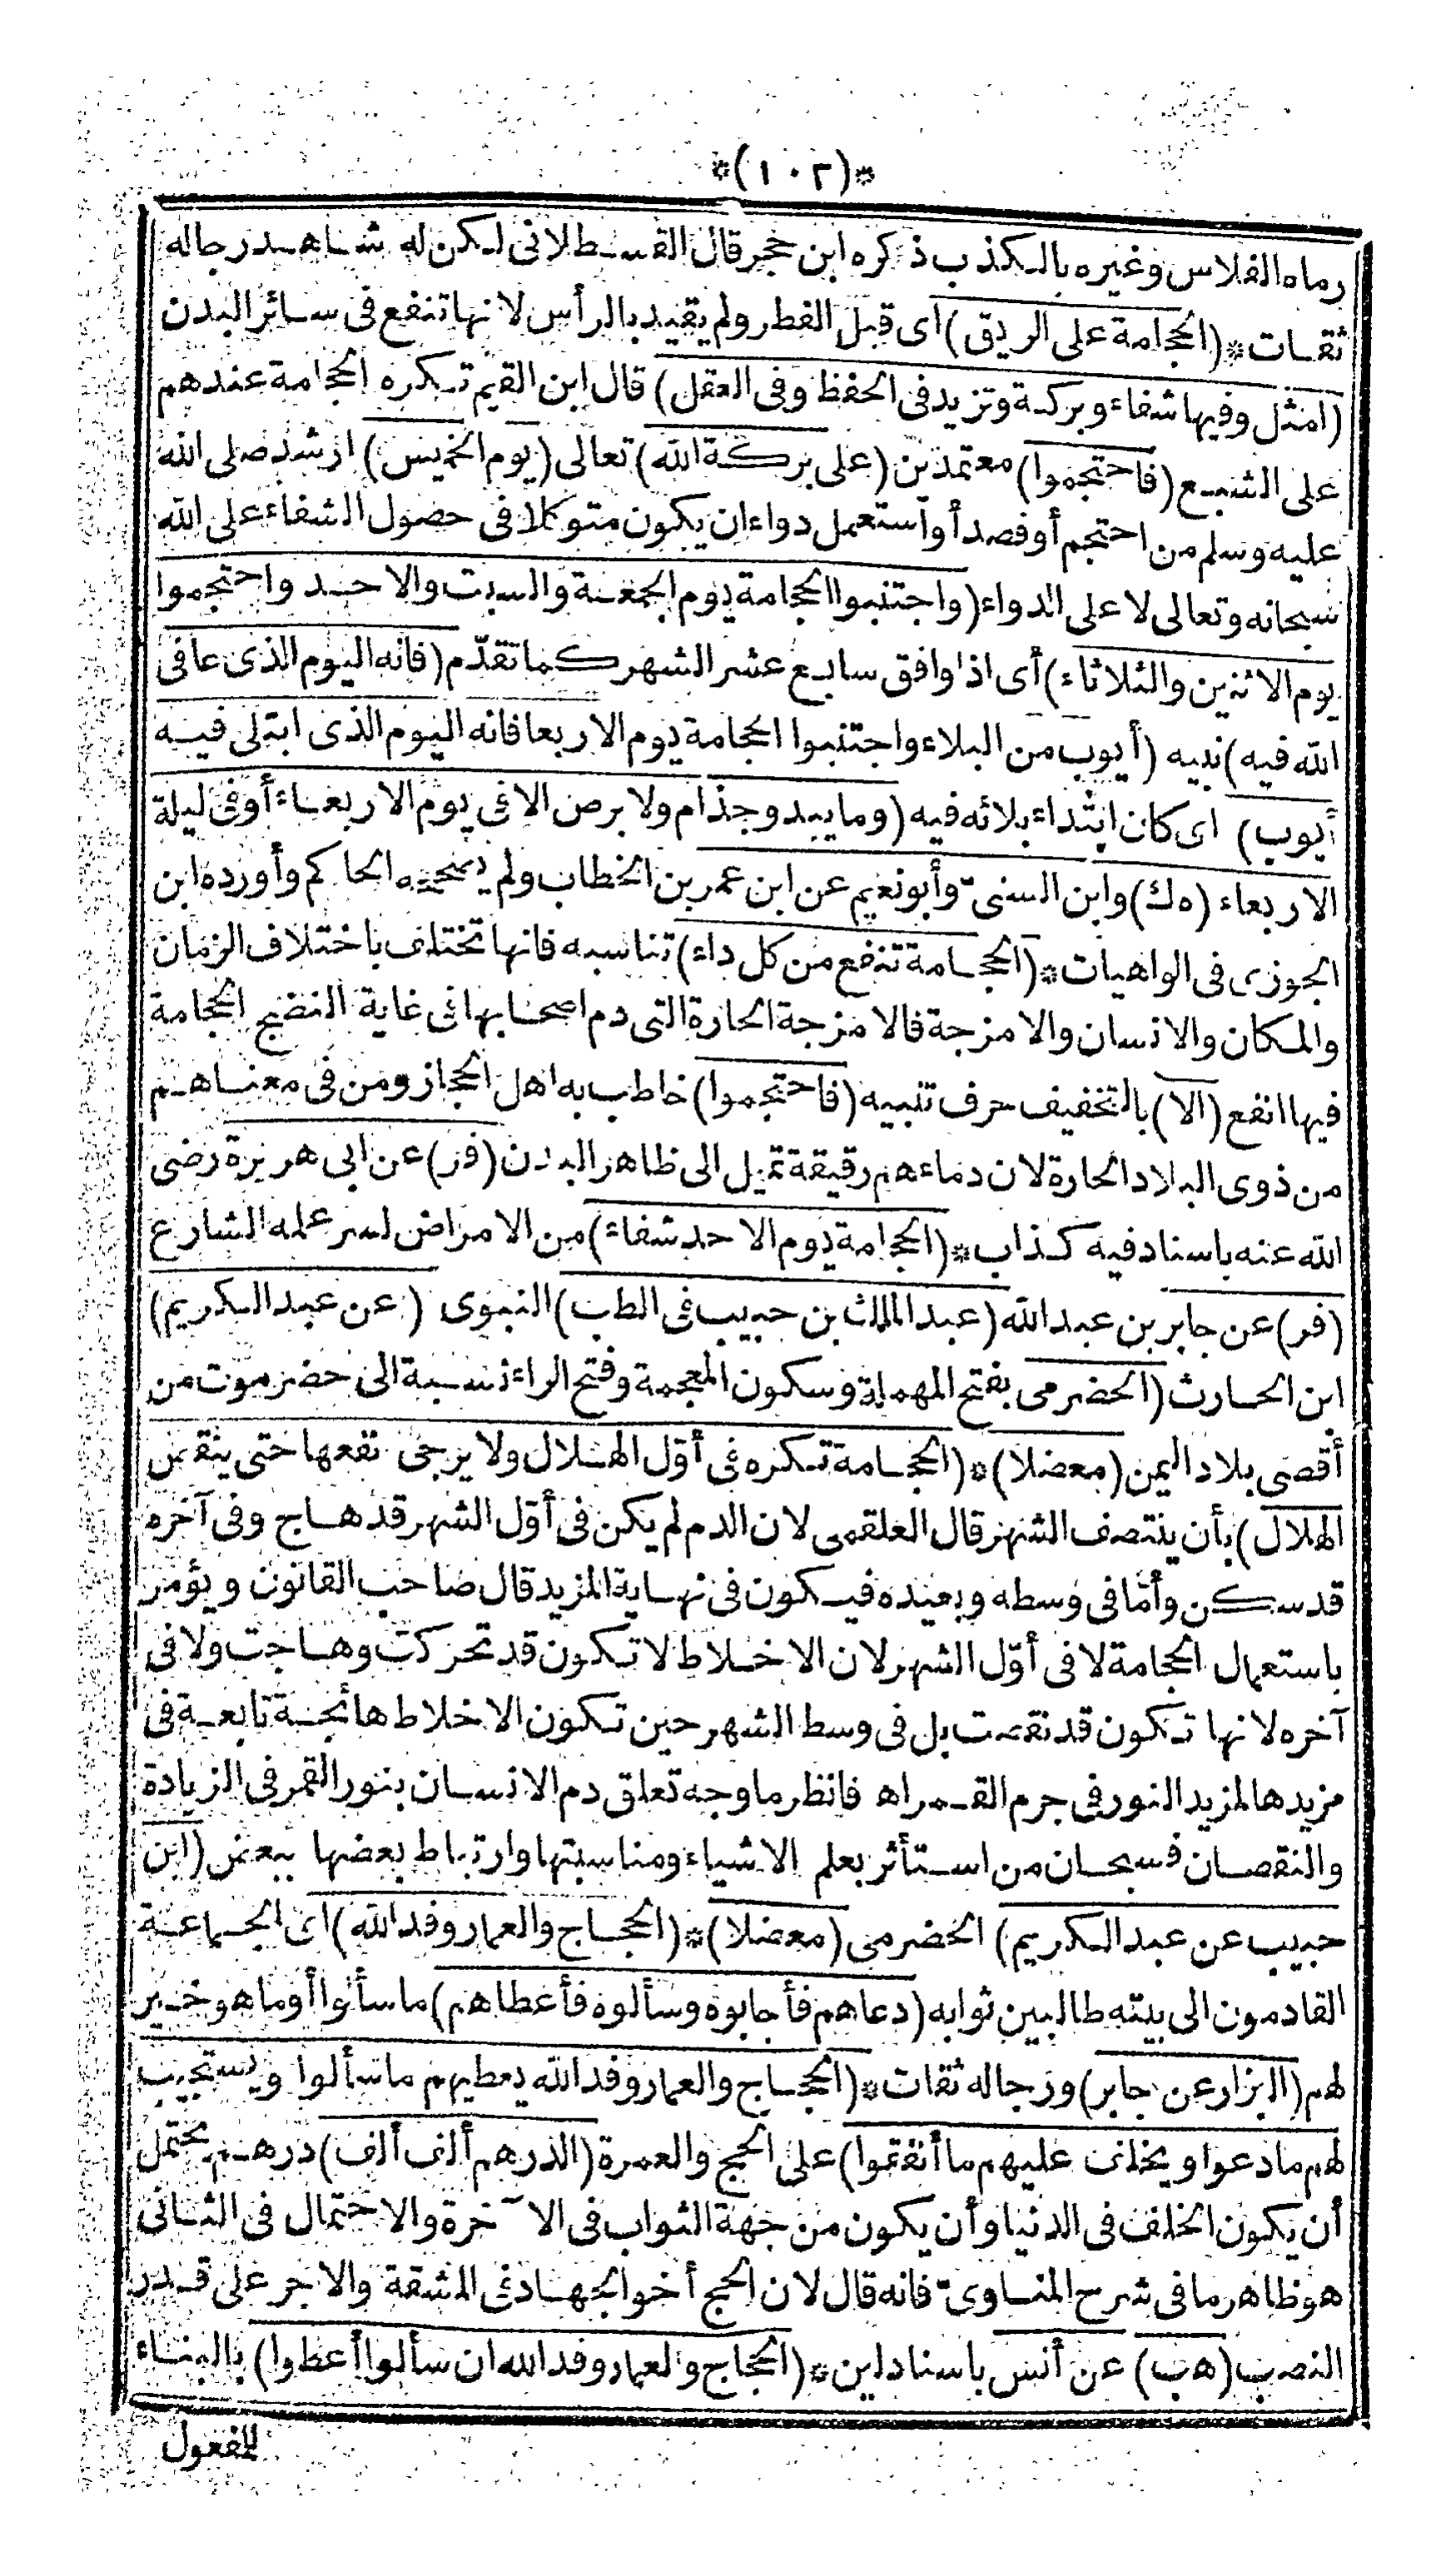 *(١٠٢)*
رماه الفلاس وغيره بالكذب ذكره ابن حجر قال القسطلانى لكن له شاهد رجاله
ثقات*(الحجامة على الريق) أى قبل الفطر ولم يقيد بالرأس لانها تنفع فى سائر البدن
(امثل وفيها شفاء وبركة وتزيد فى الحفظ وفى العقل) قال ابن القيم تكره الحجامة عندهم
على الشبع (فاحتجموا) معتمدين (على بركة الله) تعالى (يوم الخميس) ارشد صلى الله
عليه وسلم من احتجم أو فصد أو استعمل دواء ان يكون متوكلا فى حصول الشفاء على الله
سبحانه وتعالى لا على الدواء (واجتنبوا الحجامة يوم الجمعة والسبت والاحد واحتجموا
يوم الاثنين والثلاثاء) أى اذا وافق سابع عشر الشهر كما تقدّم (فانه اليوم الذى عافى
الله فيه) نبيه (أيوب من البلاء واجتنبوا الحجامة يوم الاربعا فانه اليوم الذى ابتلى فيه
أيوب) اى كان ابتداء بلائه فيه (وما يبدو جذام ولا برص الا فى يوم الاربعاء أو فى ليلة
الاربعاء (ه ك) وابن السنىّ وأبو نعيم عن ابن عمر بن الخطاب ولم يصححه الحاكم وأورده ابن
الجوزى فى الواهيات*(الحجامة تنفع من كل داء) تناسبه فانها تختلف باختلاف الزمان
والمكان والانسان والامزجة فالامزجة الحارة التى دم اصحابها فى غاية النضج الحجامة
فيها انفع (الا) بالتخفيف حرف تنبيه (فاحتجموا) خاطب به اهل الحجاز ومن فى معناهم
من ذوى البلاد الحارة لان دماءهم رقيقة تميل الى ظاهر البدن (فر) عن ابى هريرة رضى
الله عنه باسناد فيه كذاب*(الحجامة يوم الاحد شفاء) من الامراض لسر علمه الشارع
(فر) عن جابر بن عبد الله (عبد الملك بن حبيب فى الطب) النبوى (عن عبد الكريم)
ابن الحارث (الحضرمى بفتح المهملة وسكون المعجمة وفتح الراء نسبة الى حضرموت من
أقصى بلاد اليمن (معضلا)*(الحجامة تكره فى أوّل الهلال ولا يرجى نفعها حتى ينقص
الهلال) بأن ينتصف الشهر قال العلقمى لان الدم لم يكن فى أوّل الشهر قد هاج وفى آخره
قد سكن وأمّا فى وسطه وبعيده فيكون فى نهاية المزيد قال صاحب القانون ويؤمر
باستعمال الحجامة لا فى أوّل الشهر لان الاخلاط لا تكون قد تحركت وهاجت ولا فى
آخره لانها تكون قد نقصت بل فى وسط الشهر حين تكون الاخلاط هائجة تابعة فى
مزيدها المزيد النور فى جرم القمر اه فانظر ما وجه تعلق دم الانسان بنور القمر فى الزيادة
والنقصان فسبحان من استأثر بعلم الاشياء ومناسبتها وارتباط بعضها ببعض (ابن
حبيب عن عبد الكريم) الحضرمى (معضلا)*(الحجاج والعمار وفد الله) اى الجماعة
القادمون الى بيته طالبين ثوابه (دعاهم فأجابوه وسألوه فأعطاهم) ما سألوا أو ما هو خير
لهم (البزار عن جابر) ورجاله ثقات*(الحجاج والعمار وفد الله يعطيهم ما سألوا ويستجيب
لهم ما دعوا ويخلف عليهم ما أنفقوا) على الحج والعمرة (الدرهم ألف ألف) درهم يحتمل
أن يكون الخلف فى الدنيا وأن يكون من جهة الثواب فى الآخرة والاحتمال فى الثانى
هو ظاهر ما فى شرح المناوىّ فانه قال لان الحج أخو الجهاد فى المشقة والاجر على قدر
النصب (هب) عن أنس باسناد لين*(الحجاج والعمار وفد الله ان سألوا أعطوا) بالبناء
للمفعول